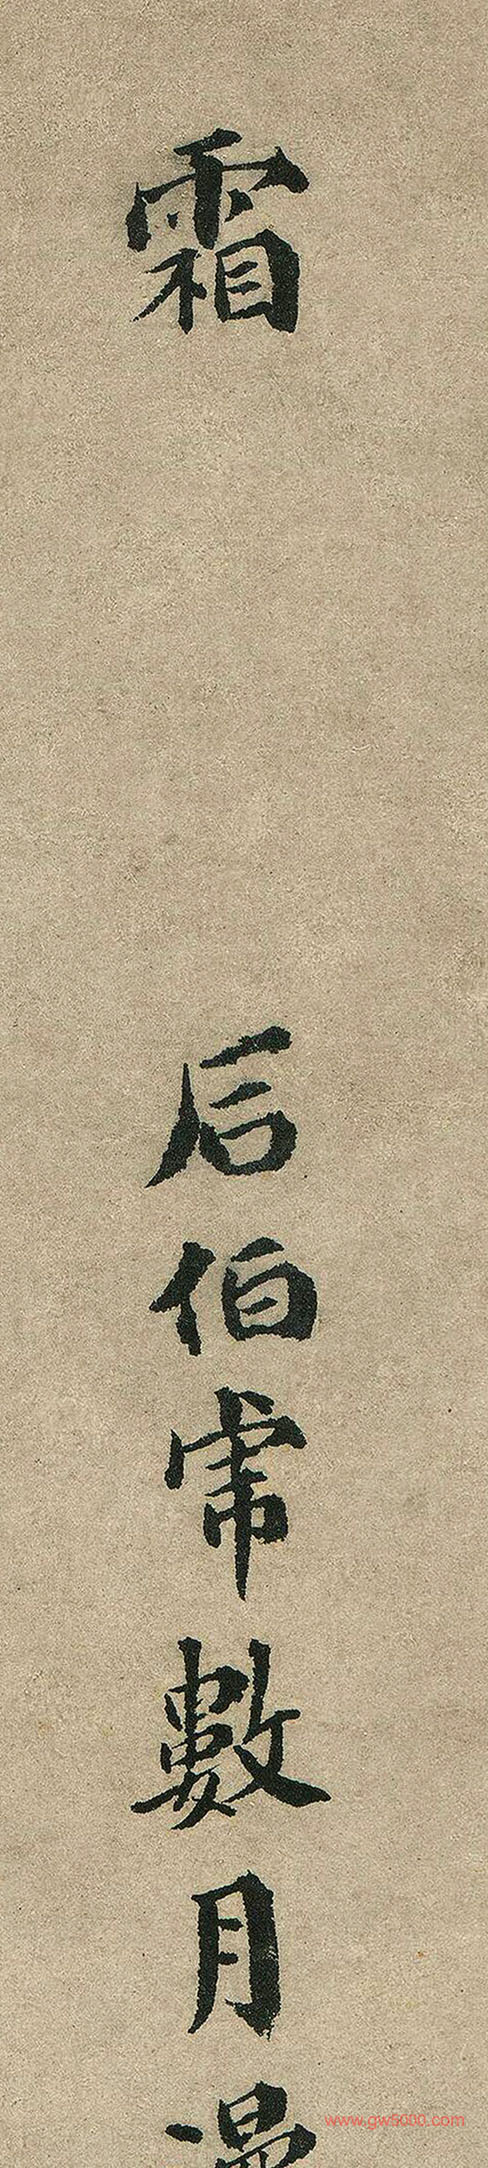 霜 后伯常數月
www.gw5000.com